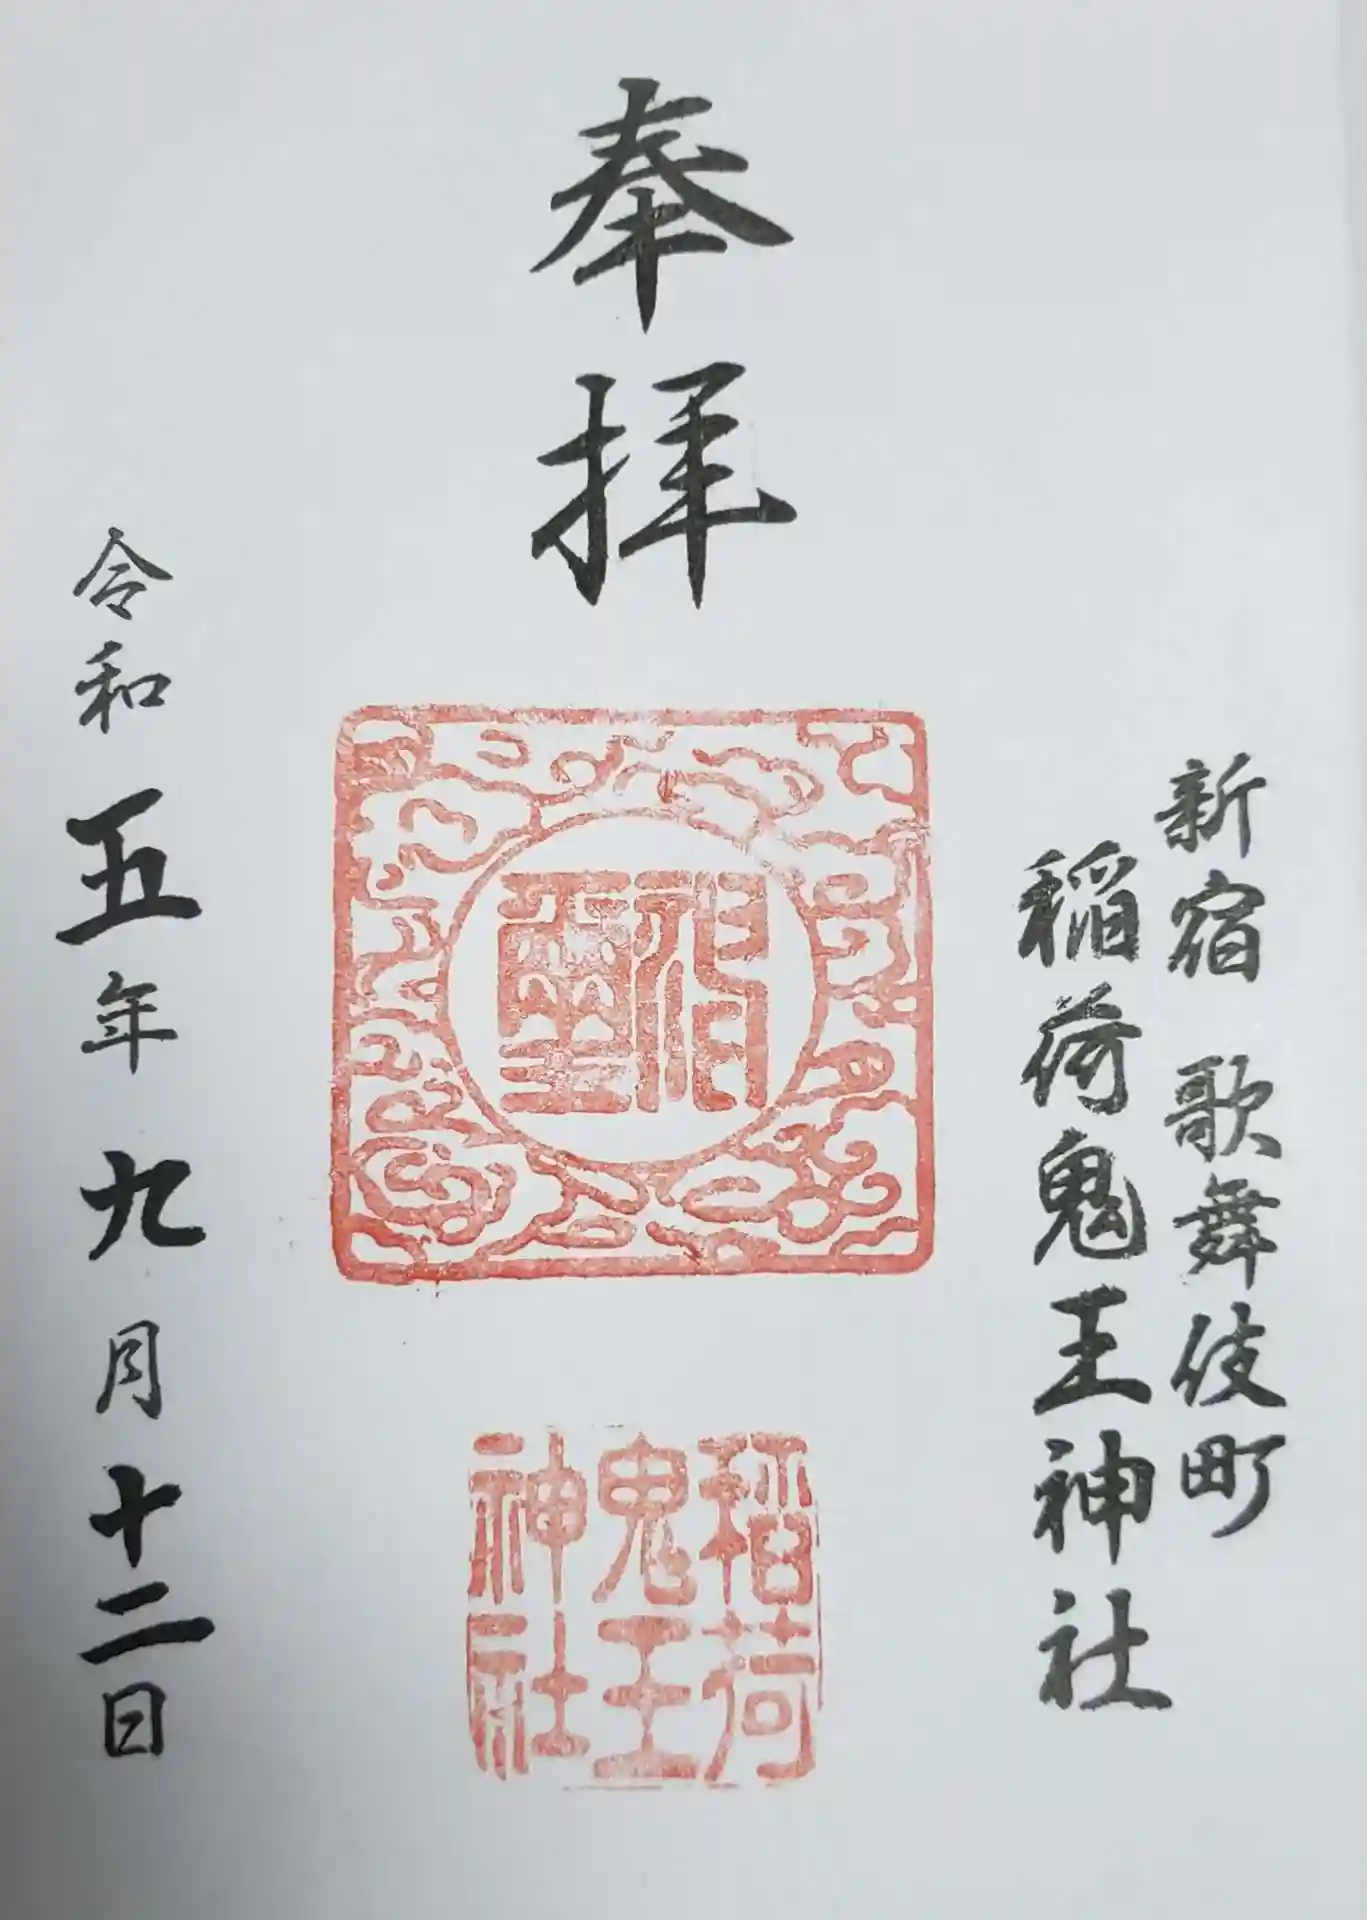 新宿 歌舞伎町
稲荷鬼王神社
奉拝
稲荷
鬼王
神社
令和五年九月十二日